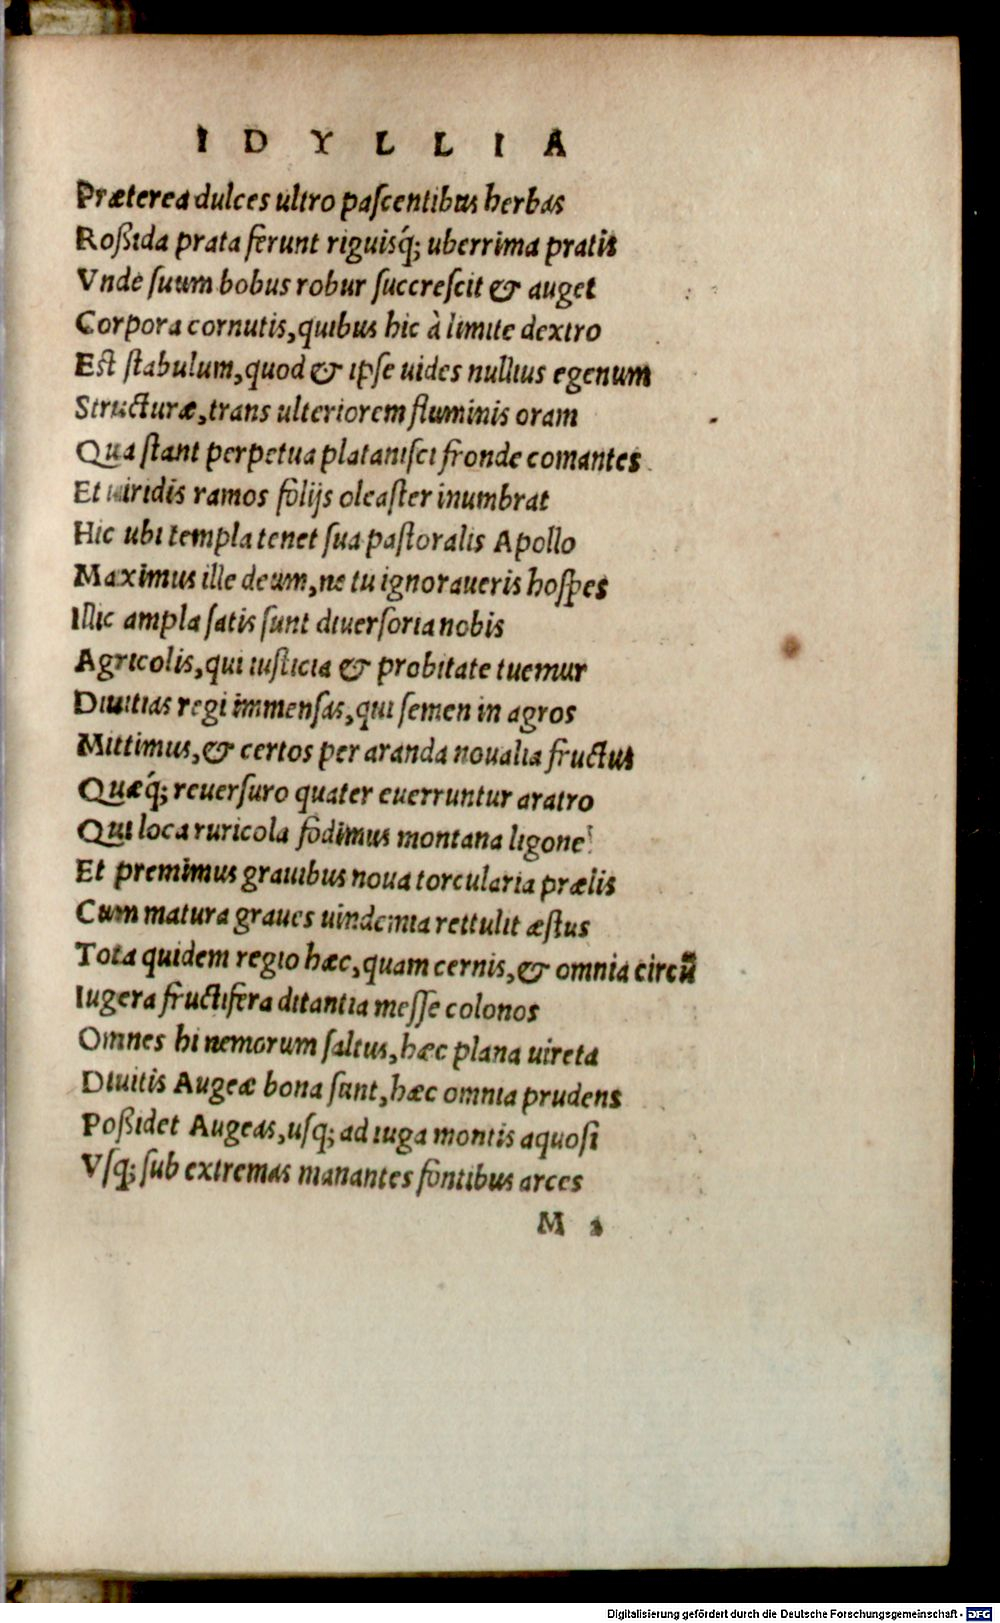 IDYLLIA
Præterea dulces ultro pascentibus herbas
Roßida prata ferunt riguisq́; uberrima pratis
Vnde suum bobus robur succrescit & auget
Corpora cornutis, quibus hic à limite dextro
Est stabulum, quod & ipse uides nullius egenum
Structuræ, trans ulteriorem fluminis oram
Qua stant perpetua platanisci fronde comantes
Et uiridis ramos folijs oleaster inumbrat
Hic ubi templa tenet sua pastoralis Apollo
Maximus ille deum, ne tu ignoraueris hospes
Illic ampla satis sunt diuersoria nobis
Agricolis, qui iusticia & probitate tuemur
Diuitias regi immensas, qui semen in agros
Mittimus, & certos per aranda noualia fructus
Quæq́; reuersuro quater euerruntur aratro
Qui loca ruricola fodimus montana ligone
Et premimus grauibus noua torcularia prælis
Cum matura graues uindemia rettulit æstus
Tota quidem regio hæc, quam cernis, & omnia circũ
Iugera fructifera ditantia messe colonos
Omnes hi nemorum saltus, hæc plana uireta
Diuitis Augeæ bona sunt, hæc omnia prudens
Poßidet Augeas, usq; ad iuga montis aquosi
Vsq; sub extremas manantes fontibus arces
M 2
Digitalisierung gefördert durch die Deutsche Forschungsgemeinschaft - DFG